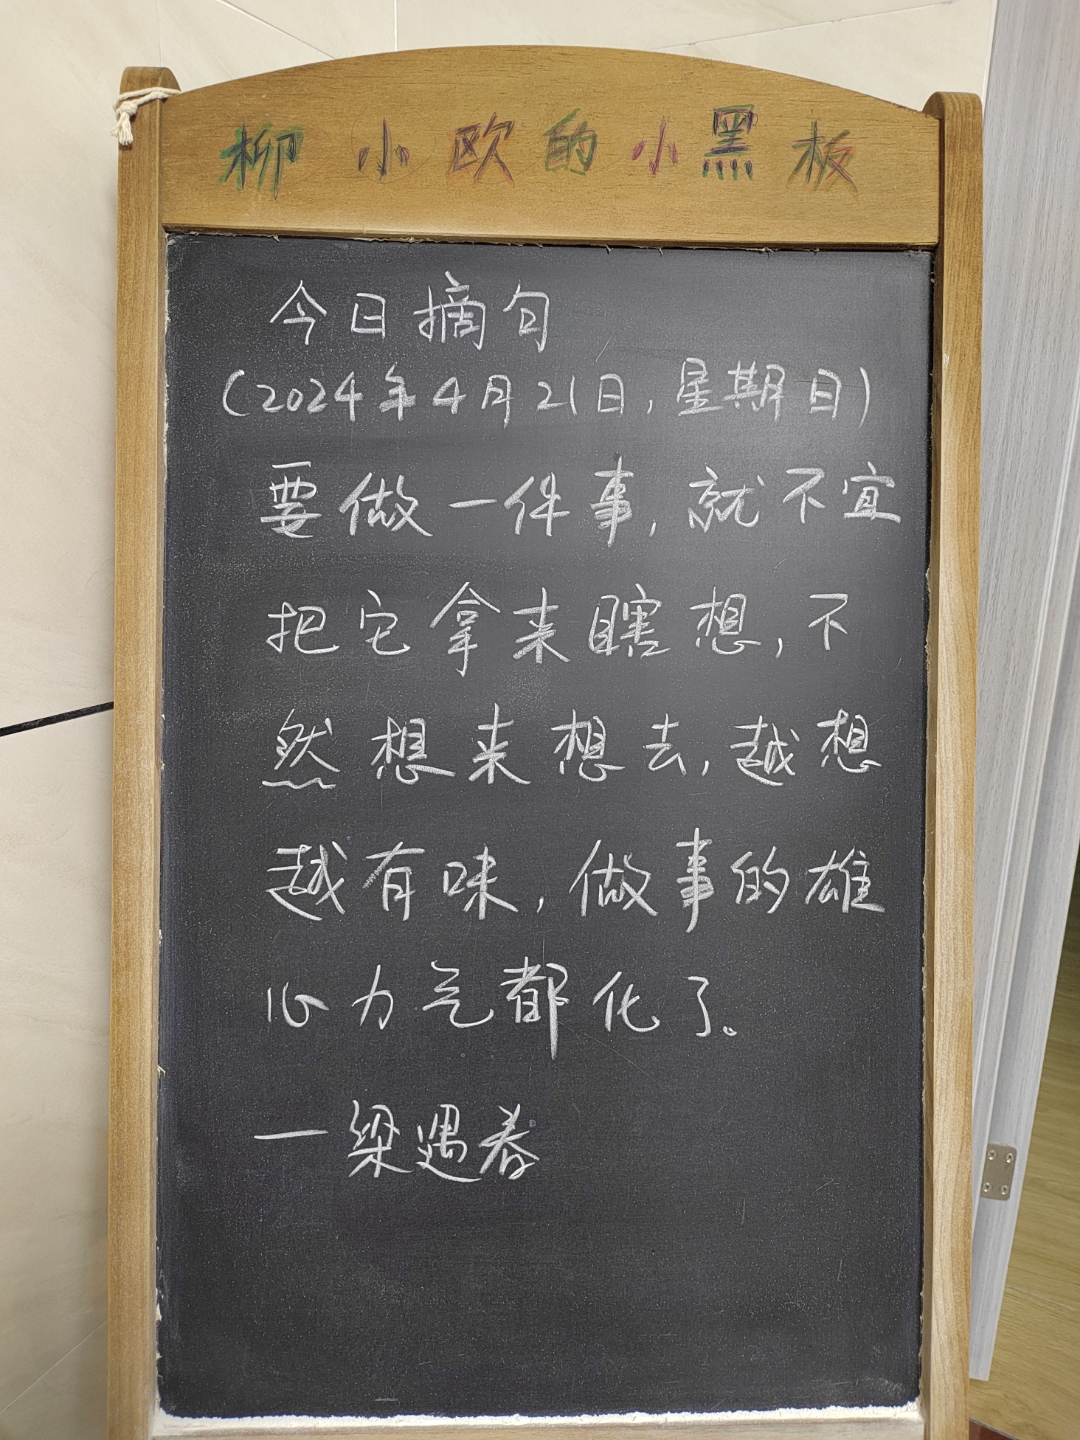 柳小欧的小黑板
今日摘句
(2024年4月21日,星期日)
要做一件事,就不宜
把它拿来瞎想,不
然想来想去,越想
越有味,做事的雄
心力气都化了。
—梁遇春